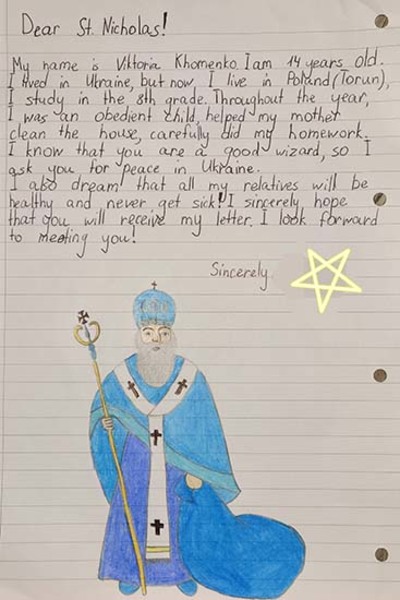 Dear St. Nicholas!
My name is Viktoria Khomenko. I am 14 years old.
I lived in Ukraine, but now I live in Poland (Torun),
I study in the 8th grade. Throughout the year,
I was an obedient child, helped my mother
clean the house, carefully did my homework.
I know that you are a good wizard, so I
ask you for peace in Ukraine.
I also dream that all my relatives will be
healthy and never get sick! I sincerely hope
that you will receive my letter. I look forward
to meeting you!
Sincerely